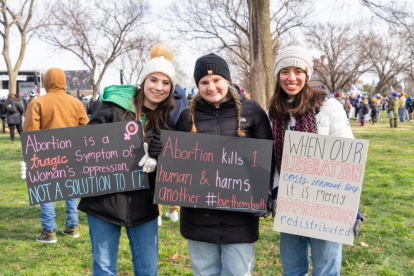 Abortion is a
tragic Symptom of
Woman's Oppression
NOT A SOLUTION TO IT
Abortion kills 1
human & harms
another #lovethemboth
WHEN OUR
LIBERATION
costs innocent lives
it is merely
OPPRESSION
redistributed